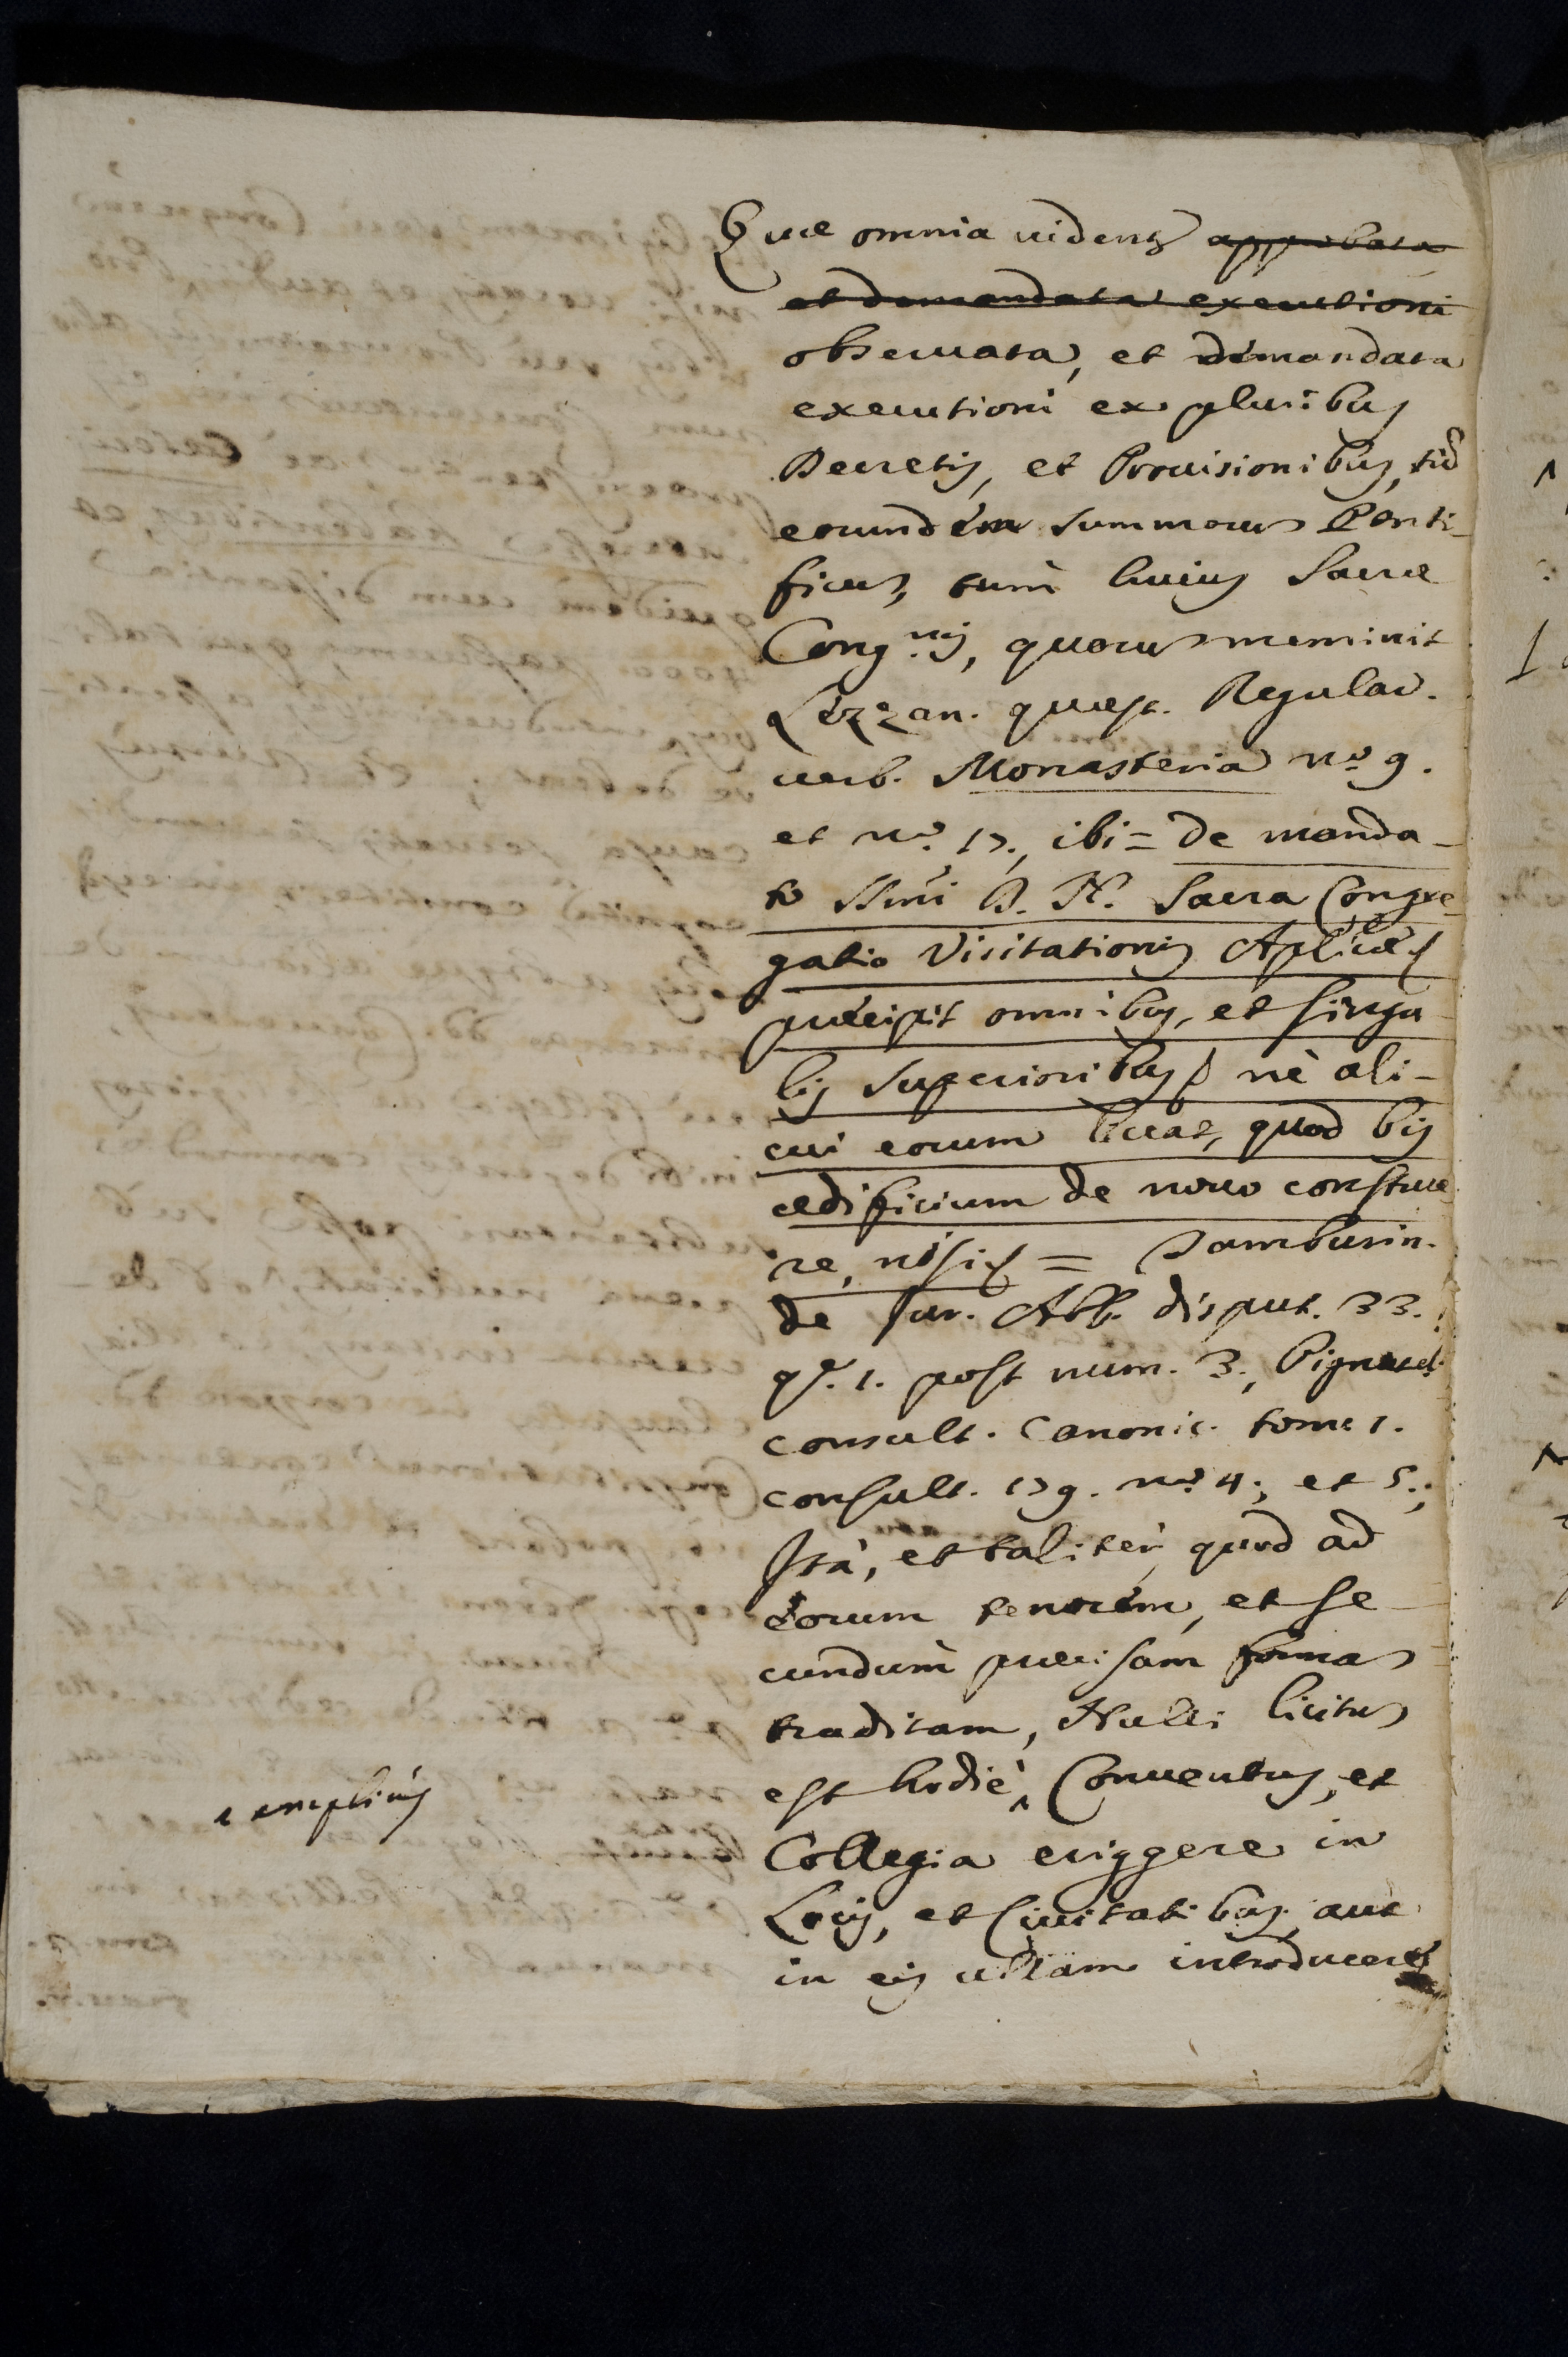 Quæ omnia uident~ approbata
et demandata executioni
obseruata, et demandata
executioni ex pluribus
Decretis, et Prouisionibus,
eorundèm summorum Ponti-
ficum, tùm huius Sacræ
Cong.nis, quorum meminit
Lezzan. quæst. Regular.
uerb. Monasteria n.o 9.
et n.o 17., ibi = de manda-
to SSmi D. N. Sacra Congre-
gatio Visitationis Aplicæ
præcipit omnibus, et singu
lis Superioribus nè ali-
cui eorum liceat, quod
ædificium de nouo construe
re, nisi = Tamburin.
de Jur. Abb. disput. 33.
q.e 1. post num. 3., Pignatel.
consult. Canonic. tom. 1.
consult. 179. n.o 4., et 5.;
Ità, et talitèr, quod ad
eorum tenorèm, et se
cundùm præcisam formam
traditam, Nulli licitum
est hodiè ^ Conuentus, et
ampliùs
Collegia eriggere in
Locis, et Ciuitatibus, aut
in eis ullam introducere